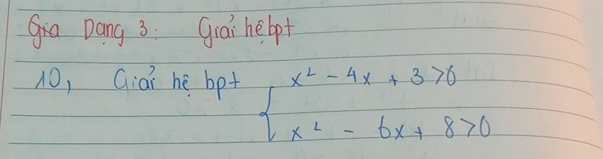 Gia Dạng 3: Giải hệ bpt
10, Giải hệ bpt { x² - 4x + 3 > 0
x² - 6x + 8 > 0